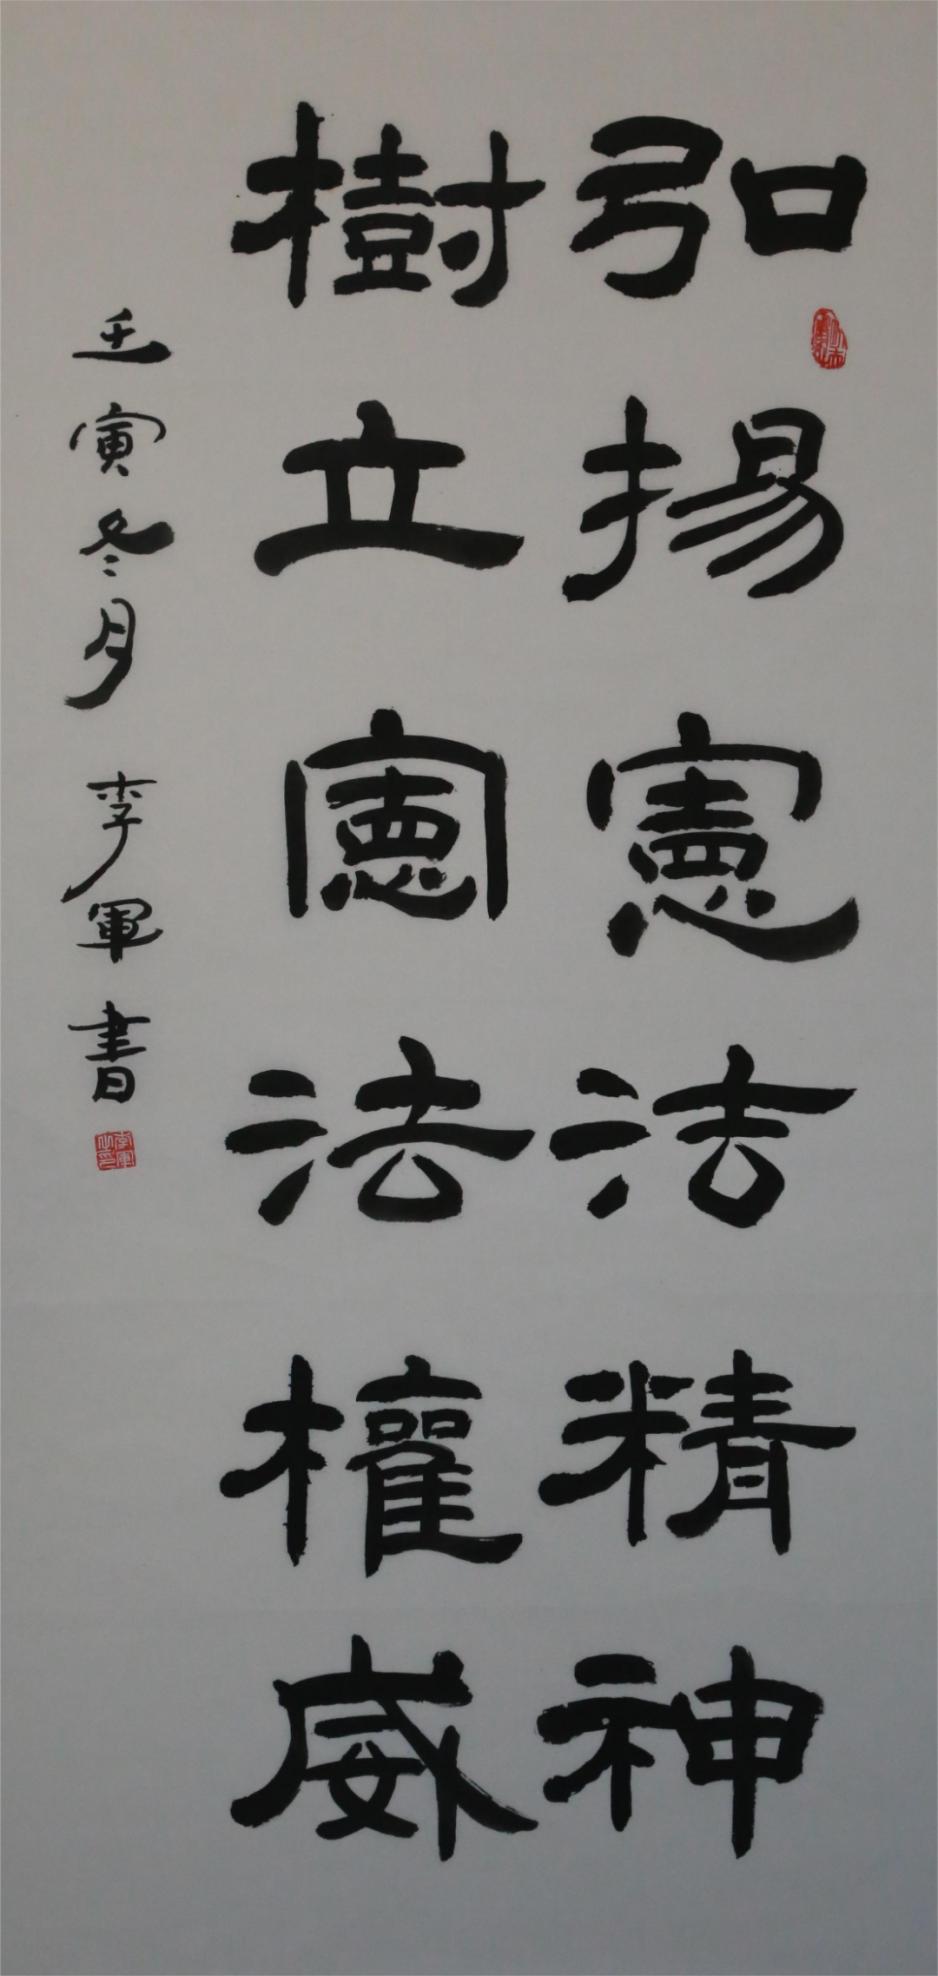 弘揚憲法精神
樹立憲法權威
壬寅冬月 李軍書
李軍之印